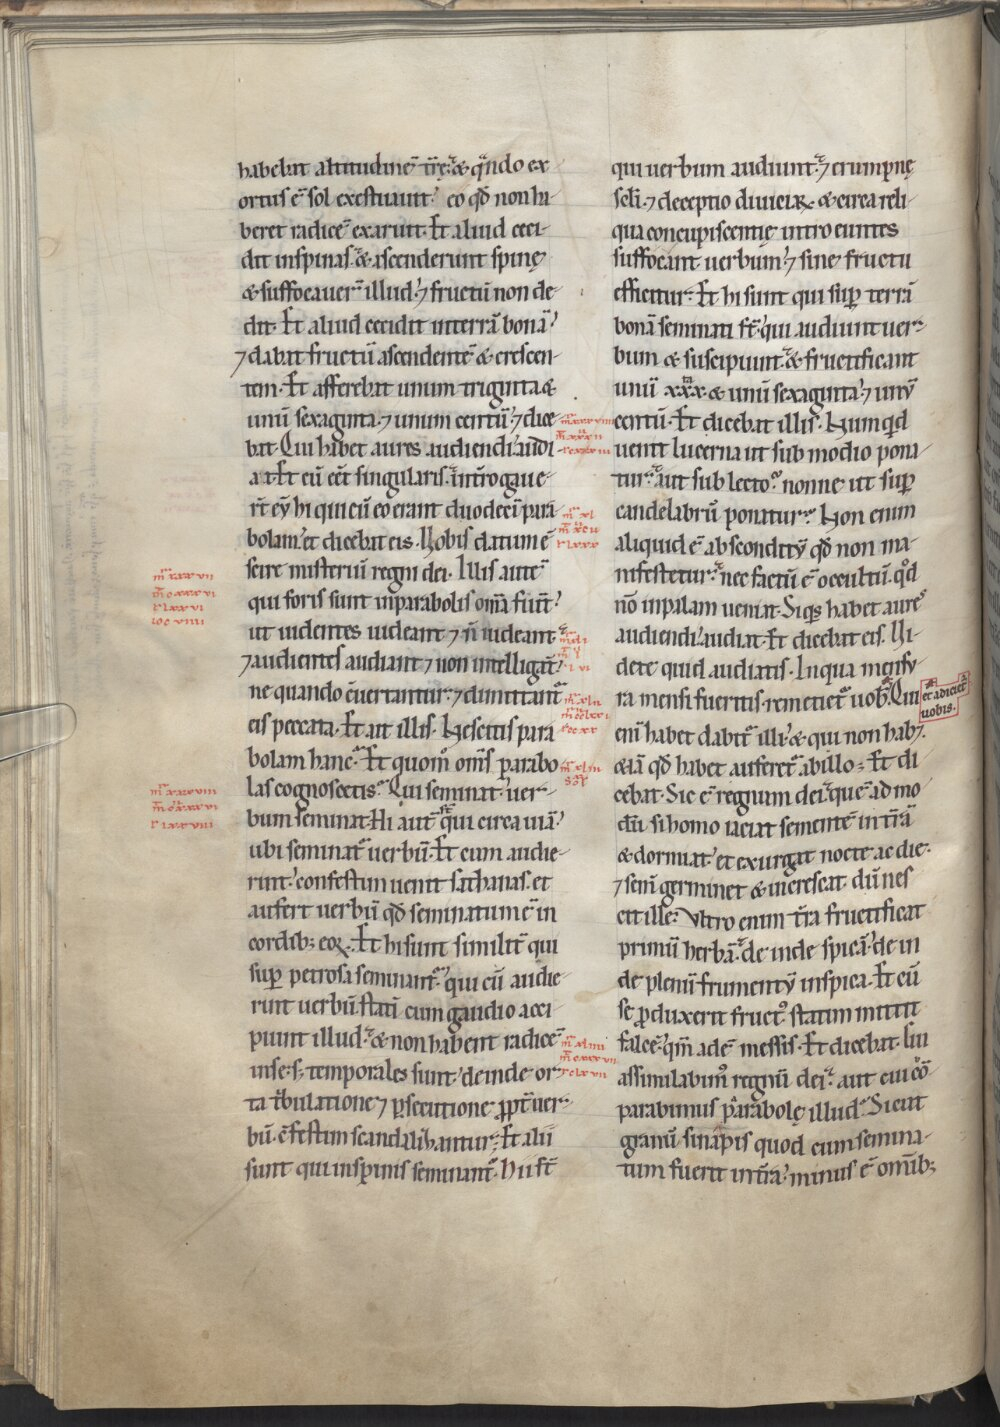 habebat altitudinē tr̄ę. & qn̄do ex
ortus ē sol exestuauit. eo qd̄ non ha
beret radicē exaruit. Et aliud ceci-
dit inspinas. & ascenderunt spinę
& suffocauer̄ illud. ⁊ fructū non de
dit. Et aliud cecidit interrā bonā.
⁊ dabat fructū ascendentē & crescen-
tem. Et afferebat unum triginta &
unū sexaginta. ⁊ unum centū. ⁊ dice
bat. Qui habet aures audiendi audi
at. Et cū eēt singularis. int̄rogaue-
rt̄ eū hi qui cū eo erant duodecī para
bolam. et dicebat eis. Nobis datum ē
scire misteriū regni dei. Illis autē
qui foris sunt inparabolis om̄a fiūt.
ut uidentes uideant ⁊ n̄ uideant.
⁊ audientes audiant ⁊ non intelligāt.
ne quando c̄uertantur. ⁊ dimittant᷑
eis peccata. Et ait illis. Nescitis para
bolam hanc. Et quom̊ om̄s parabo
las cognoscetis. Qui seminat. uer-
bum seminat. Hi aut̄ st̄ qui circa uiā.
ubi seminat᷑ uerbū. Et cum audie-
rint. confestim uenit sathanas. et
aufert uerbū qd̄ seminatum ē in
cordib; eoꝝ. Et hi sunt similit̄ qui
suꝑ petrosa seminant᷑. qui cū audie-
rint uerbū stati cum gaudio acci-
piunt illud. & non habent radicē
inse. s; temporales sunt. deinde or-
ta tⁱbulatione ⁊ ꝑsecutione ꝓpt̄ uer-
bū. c̄festim scandalizantur. Et alii
sunt qui inspinis seminant᷑. Hii st̄
m̄ xxxvii
xcviiii
m̄ xxxviii
qui uerbum audiunt. ⁊ erumpnę
scl̄i. ⁊ deceptio diuiciaꝝ. & circa reli-
qua concupiscentię intro euntes
suffocant uerbum. ⁊ sine fructu
efficitur. Et hi sunt qui suꝑ terrā
bonā seminati st̄. qui audiunt uer-
bum & suscipiunt. & fructificant
unū xxx. & unū sexaginta. ⁊ unū
centū. Et dicebat illis. Numqd̄
uenit lucerna ut sub modio pona
tur. aut sub lecto. nonne ut suꝑ
candelabrū ponatur. Non enim
aliquid ē absconditū qd̄ non ma-
nifestetur. nec factū ē occultū. qd̄
nō inpalam ueniat. Siqⁱs habet aures
audiendi. audiat. Et dicebat eis. Ui-
dete quid audiatis. Inqua mensu-
ra mensi fueritis. remetiet᷑ uob. Qui
et adiciet᷑
uobis.
enī habet dabit᷑ illi. & qui non hab&.
&iā qd̄ habet auferet᷑ abillo. Et di
cebat. Sic ē regnum dei. quē ad mo
dū. si homo iaciat sementē intr̄ā
& dormiat. et exurgat nocte ac die.
⁊ sem̄ germinet & increscat. dū nes
cit ille. Vltro enim tr̄ra fructificat
primū herbā. de inde spicā. de in
de plenū frumentū inspica. Et cū
se ꝓduxerit fruct᷒. statim mittit
falcē. qm̄ adē messis. Et dicebat. Cui
assimilabim᷒ regnū dei. aut cui cō
parabimus parabolę illud. Sicut
granū sinapis quod cum semina-
tum fuerit intr̄ra. minus ē omīb;